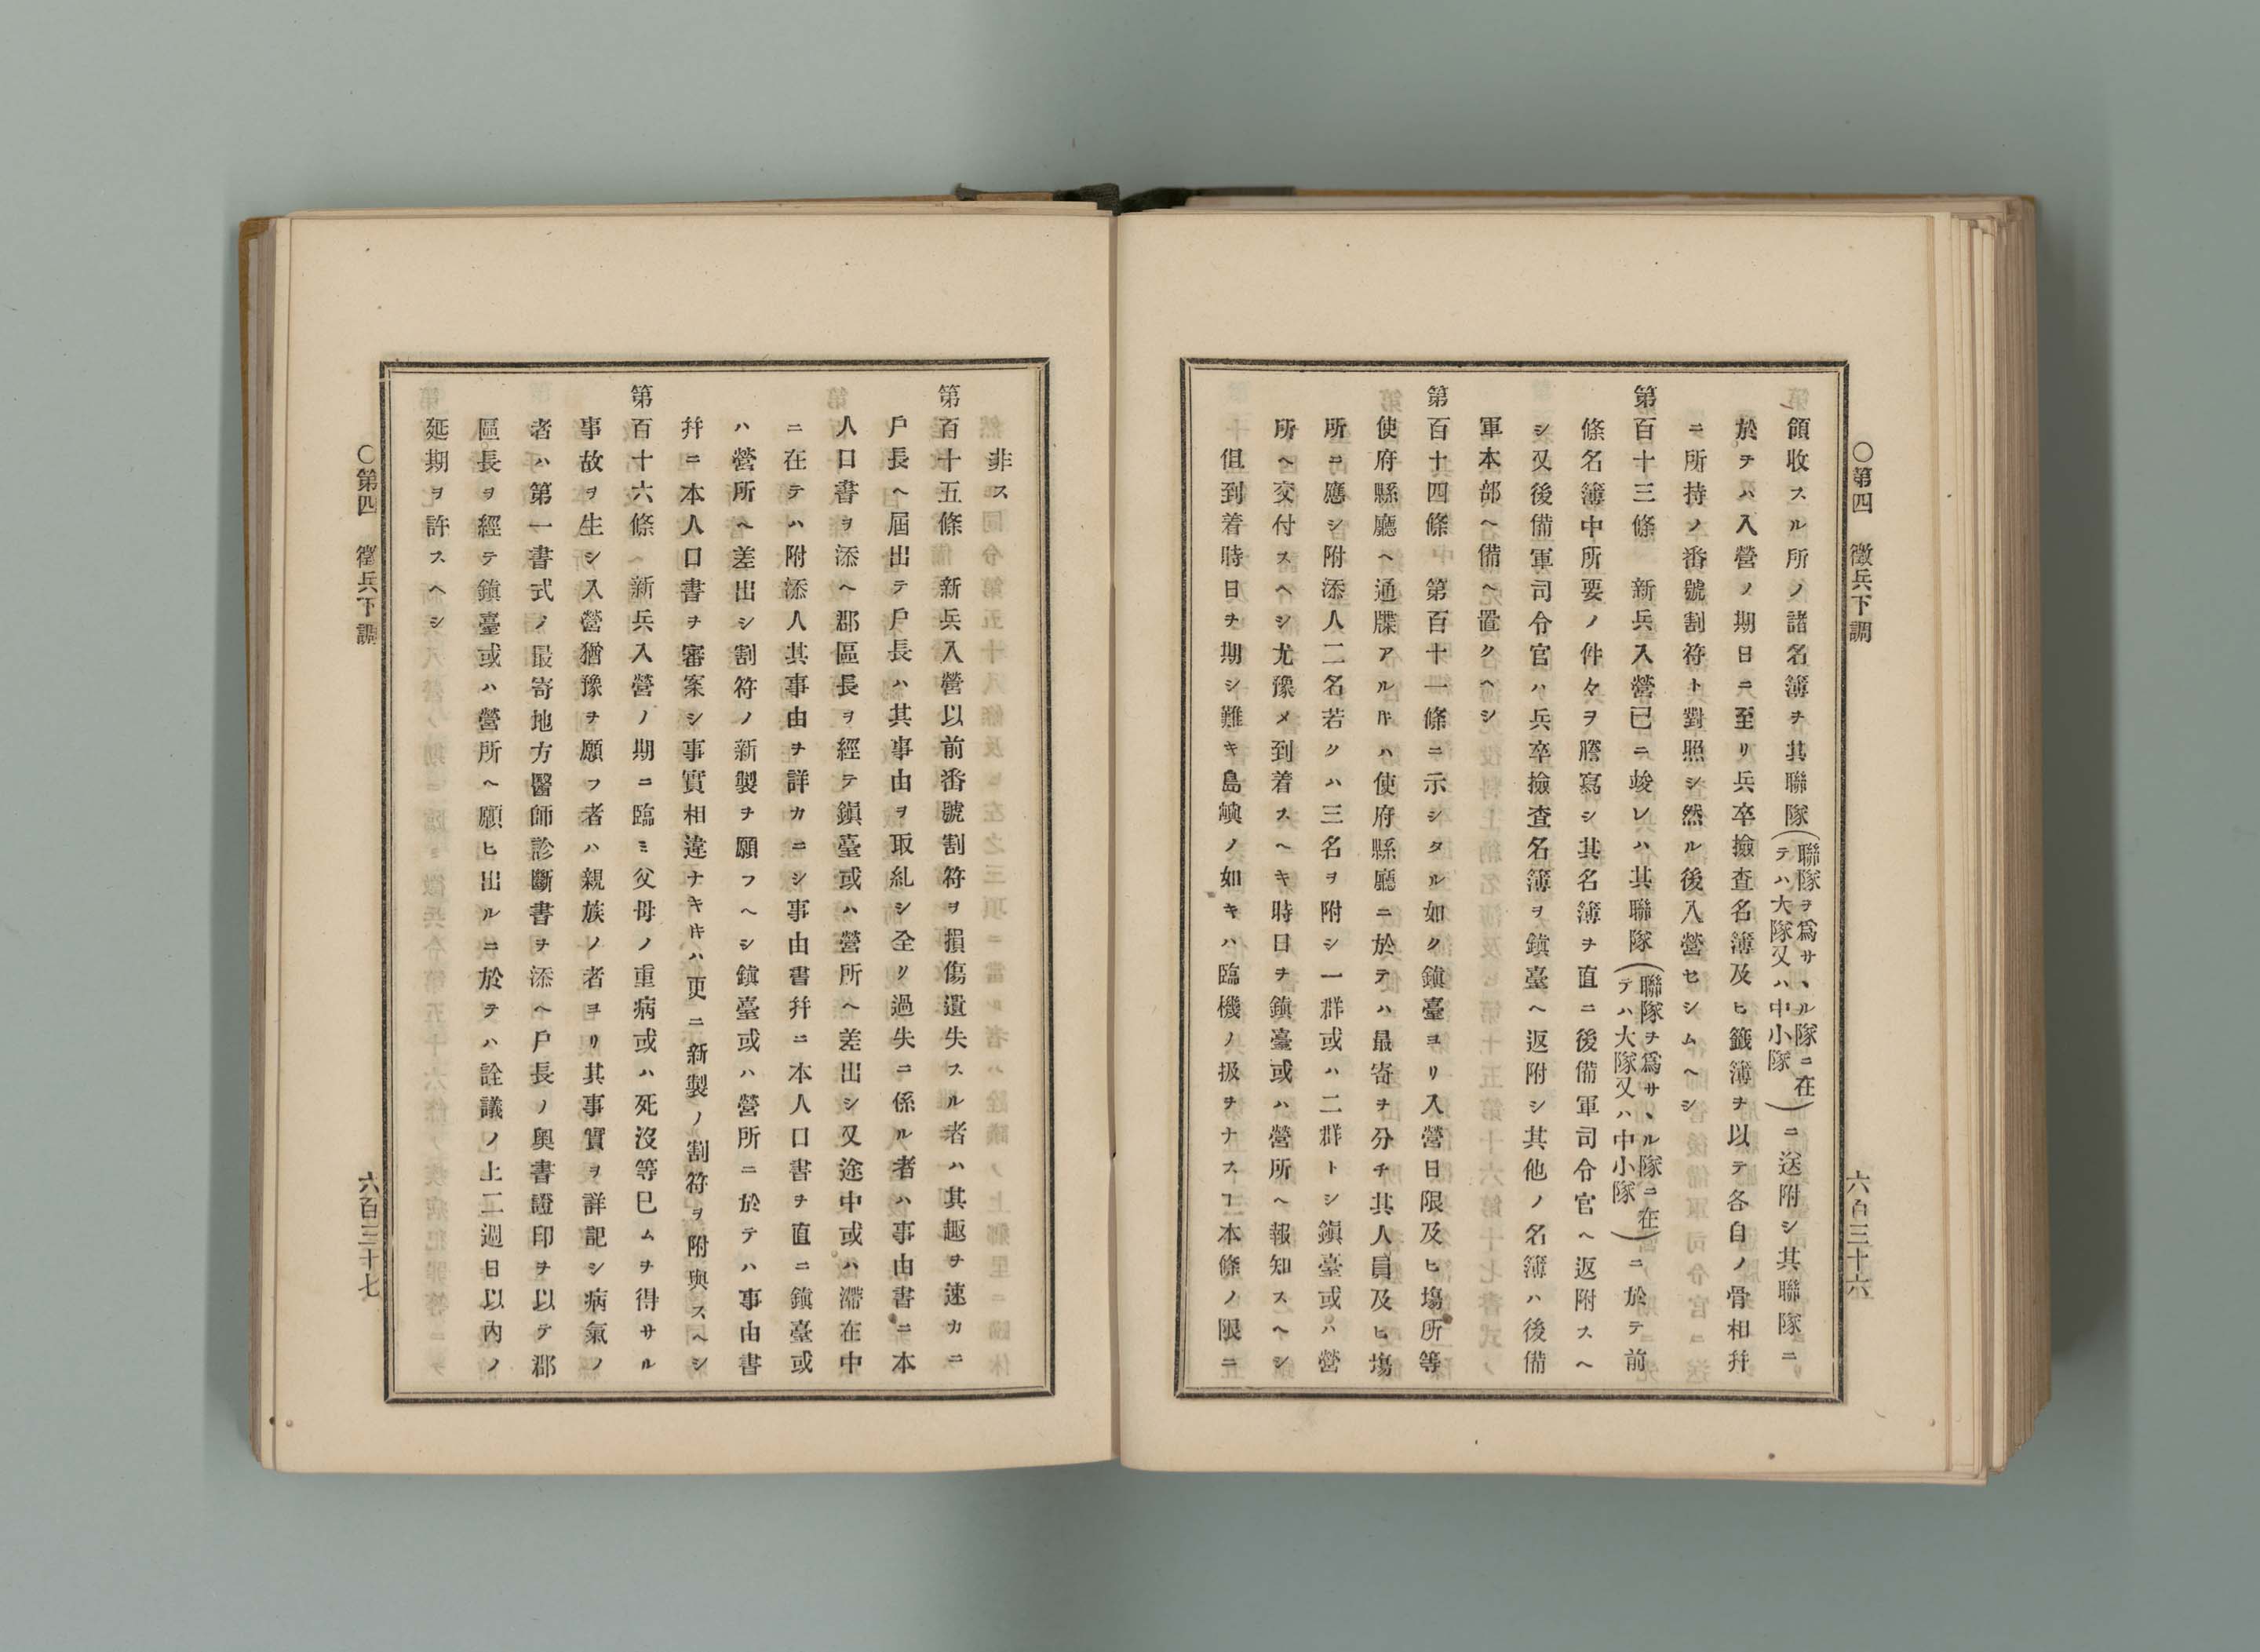 〇第四　徵兵下調
六百三十六
領收スル所ノ諸名簿ヲ其聯隊（聯隊ヲ爲サヽル隊ニ在テハ大隊又ハ中小隊）ニ送附シ其聯隊ニ
於テハ入營ノ期日ニ至リ兵卒撿査名簿及ヒ籤簿ヲ以テ各自ノ骨相幷
ニ所持ノ番號割符ト對照シ然ル後入營セシムヘシ
第百十三條　新兵入營已ニ竣レハ其聯隊（聯隊ヲ爲サヽル隊ニ在テハ大隊又ハ中小隊）ニ於テ前
條名簿中所要ノ件々ヲ謄寫シ其名簿ヲ直ニ後備軍司令官ヘ返附スヘ
シ又後備軍司令官ハ兵卒撿査名簿ヲ鎭臺ヘ返附シ其他ノ名簿ハ後備
軍本部ヘ備ヘ置クヘシ
第百十四條　第百十一條ニ示シタル如ク鎭臺ヨリ入營日限及ヒ塲所等
使府縣廳ヘ通牒アルㇳキハ使府縣廳ニ於テハ最寄ヲ分チ其人員及ヒ塲
所ニ應シ附添人二名若クハ三名ヲ附シ一群或ハ二群トシ鎭臺或ハ營
所ヘ交付スヘシ尤豫メ到着スヘキ時日ヲ鎭臺或ハ營所ヘ報知スヘシ
但到着時日ヲ期シ難キ島嶼ノ如キハ臨機ノ扱ヲナスヿ本條ノ限ニ
非ス
第百十五條　新兵入營以前番號割符ヲ損傷遺失スル者ハ其趣ヲ速カニ
戶長ヘ屆出テ戶長ハ其事由ヲ取糺シ全ク過失ニ係ル者ハ事由書ニ本
人口書ヲ添ヘ郡區長ヲ經テ鎭臺或ハ營所ヘ差出シ又途中或ハ滯在中
ニ在テハ附添人其事由ヲ詳カニシ事由書幷ニ本人口書ヲ直ニ鎭臺或
ハ營所ヘ差出シ割符ノ新製ヲ願フヘシ鎭臺或ハ營所ニ於テハ事由書
幷ニ本人口書ヲ審案シ事實相違ナキㇳキハ更ニ新製ノ割符ヲ附與スヘシ
第百十六條　新兵入營ノ期ニ臨ミ父母ノ重病或ハ死沒等已ムヲ得サル
事故ヲ生シ入營猶豫ヲ願フ者ハ親族ノ者ヨリ其事實ヲ詳記シ病氣ノ
者ハ第一書式ノ最寄地方醫師診斷書ヲ添ヘ戶長ノ奧書證印ヲ以テ郡
區長ヲ經テ鎭臺或ハ營所ヘ願ヒ出ルニ於テハ詮議ノ上二週日以內ノ
延期ヲ許スヘシ
〇第四　徵兵下調
六百三十七